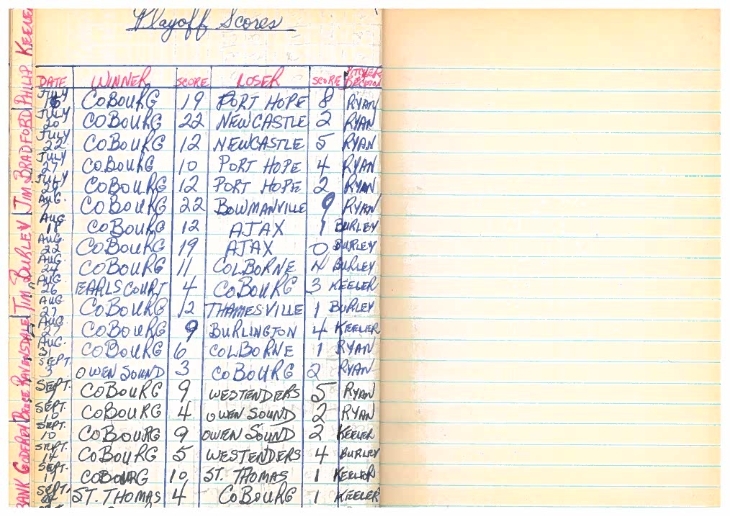 Playoff Scores
DATE WINNER SCORE LOSER SCORE PITCHER
JULY 16 COBOURG 19 PORT HOPE 8 RYAN
JULY 20 COBOURG 22 NEWCASTLE 2 RYAN
JULY 22 COBOURG 12 NEWCASTLE 5 RYAN
JULY 27 COBOURG 10 PORT HOPE 4 RYAN
JULY 29 COBOURG 12 PORT HOPE 2 RYAN
AUG. COBOURG 22 BOWMANVILLE 9 RYAN
AUG 18 COBOURG 12 AJAX 1 BURLEY
AUG. 22 COBOURG 19 AJAX 0 BURLEY
AUG. 24 COBOURG 11 COLBORNE BURLEY
AUG 26 EARLSCOURT 4 COBOURG 3 KEELER
AUG 27 COBOURG 12 THAMESVILLE 1 BURLEY
AUG. 27 COBOURG 9 BURLINGTON 4 KEELER
AUG. 31 COBOURG 6 COLBORNE 1 RYAN
SEPT. 3 OWEN SOUND 3 COBOURG 2 RYAN
SEPT. COBOURG 9 WESTENDERS 5 RYAN
SEPT. 10 COBOURG 4 OWEN SOUND 2 RYAN
SEPT. 10 COBOURG 9 OWEN SOUND 2 KEELER
SEPT. 14 COBOURG 5 WESTENDERS 4 BURLEY
SEPT. 17 COBOURG 10 ST. THOMAS 1 KEELER
SEPT. ST. THOMAS 4 COBOURG 1 KEELER
TIM BURLEY JIM BRADFORD PHILIP KEELER